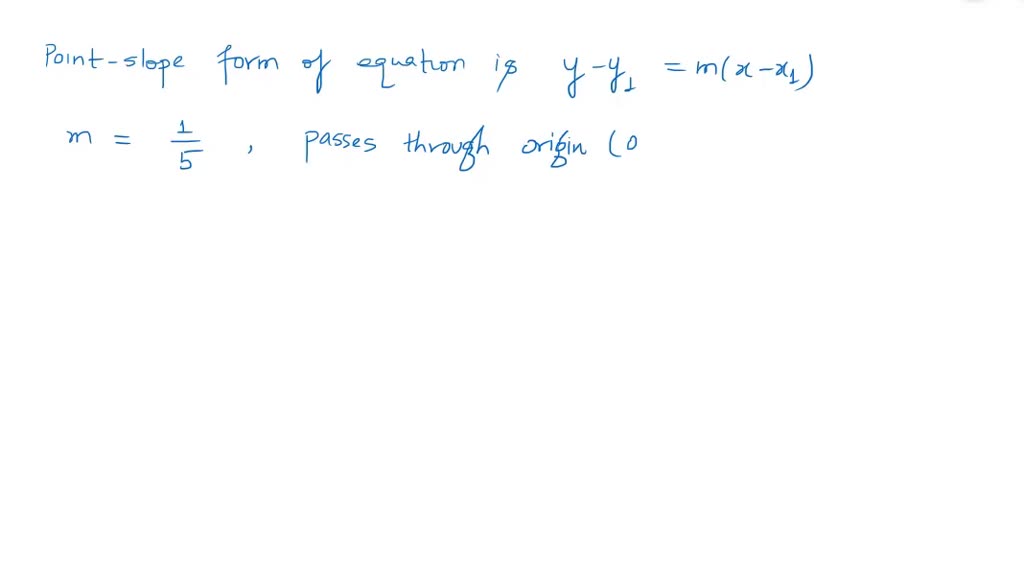 Point-slope form of equation is y-y₁ = m(x-x₁)
m = 1/5 , passes through origin (0